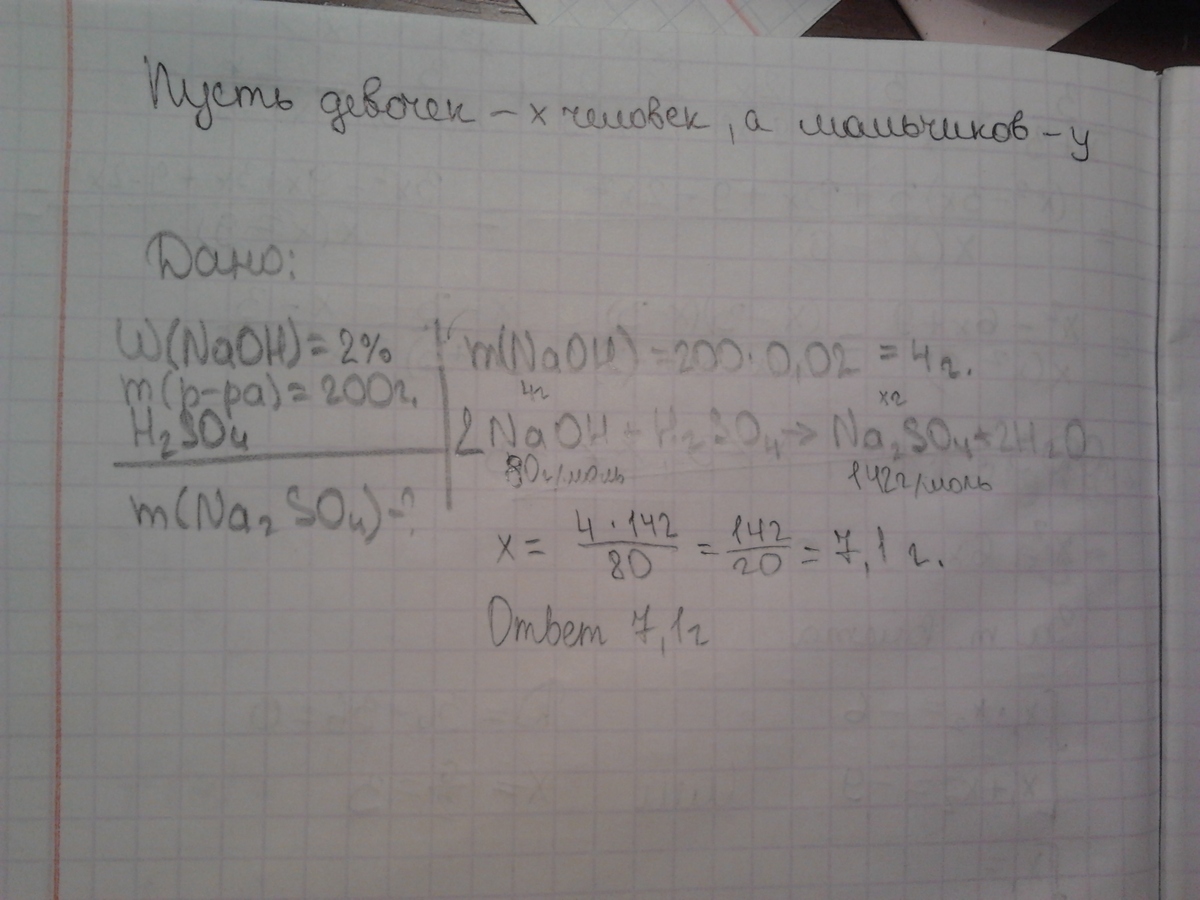 Пусть девочек - x человек, а мальчиков - y
Дано:
W(NaOH)=2%
m(р-ра)=200г.
H₂SO₄
m(Na₂SO₄)-?
m(NaOH)=200·0,02=4г.
4г xг
2NaOH+H₂SO₄→Na₂SO₄+2H₂O
80г/моль 142г/моль
x= 4·142/80 = 142/20 = 7,1 г.
Ответ 7,1г